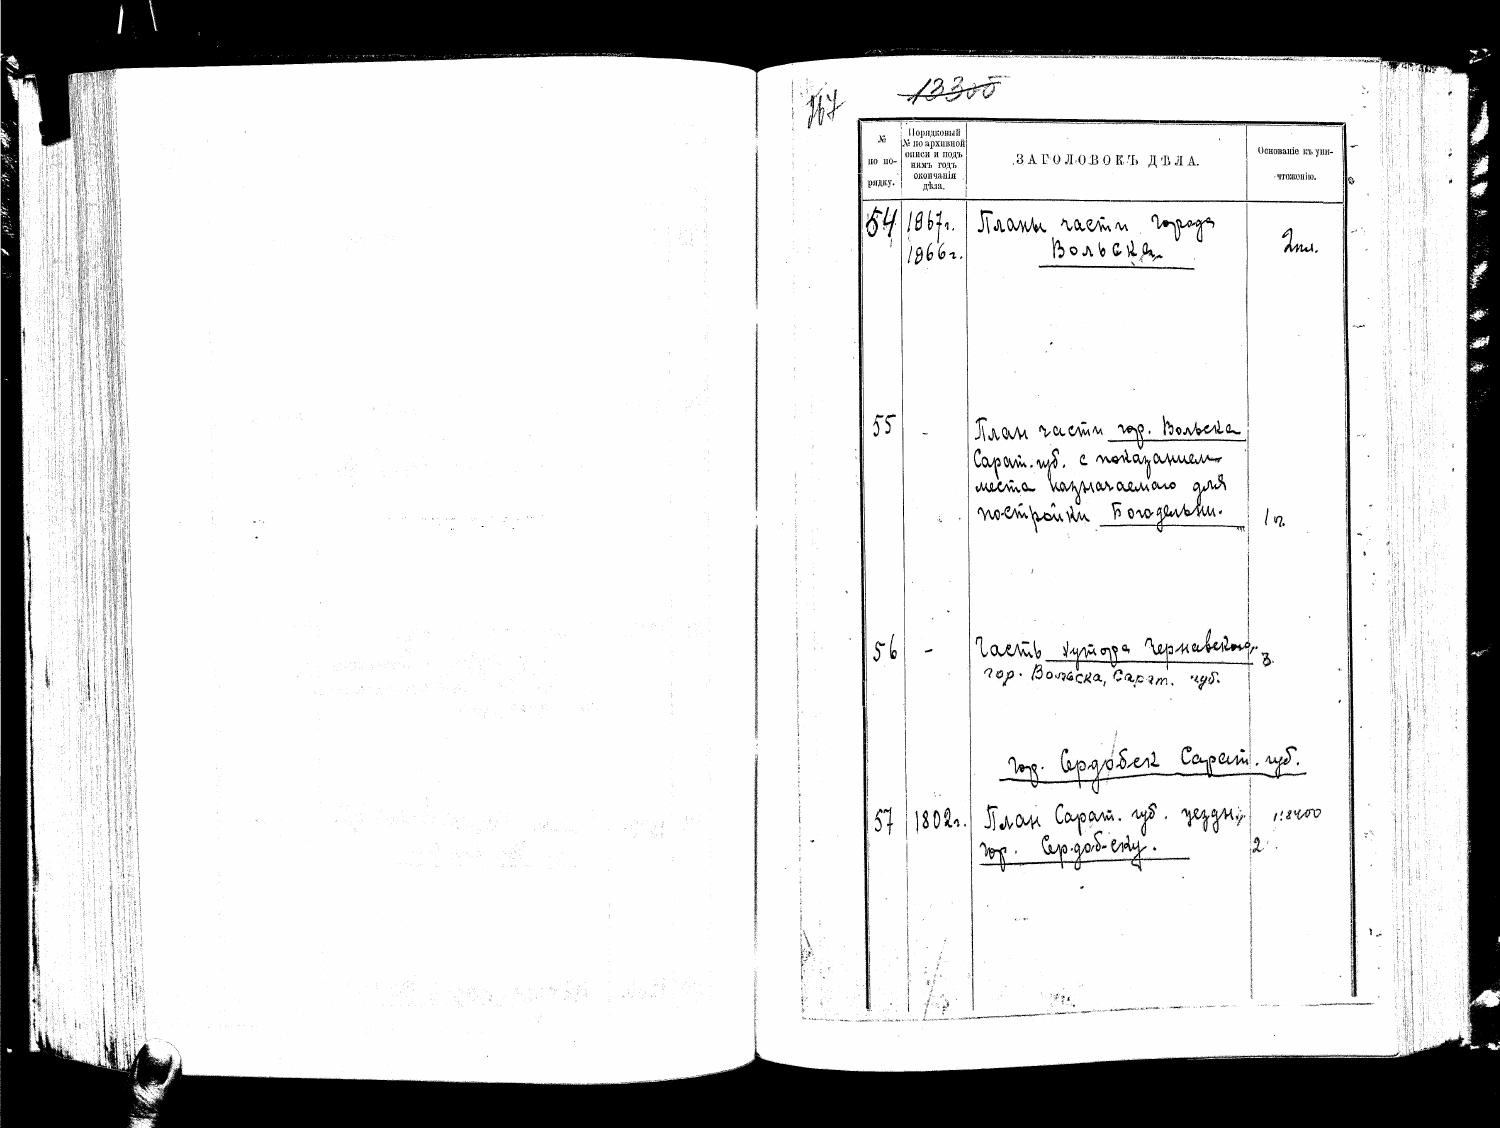 167
13300
№ по по-рядку.
Порядковый
№ по архивной
описи и подъ
нимъ годъ
окончанія
дѣла.
ЗАГОЛОВОКЪ ДѢЛА.
Основаніе къ уни-
чтоженію.
54 1867г. Планы части города
1866г. Вольска 2пл.
55 - План части гор. Вольска
Сарат. губ. с показанием
места назначаемаго для
постройки Богодельни. 1 п.
56 - Часть хутора Чернавского,
гор. Вольска, Сарат. губ.
гор. Сердобск Сарат. губ.
57 1802г. План Сарат. губ. уездн. 1:8400
гор. Сердобску. 2